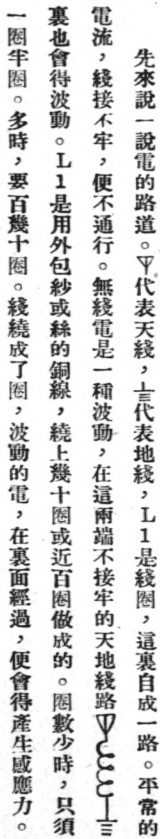 先來說一說電的路道。代表天綫，代表地綫，L1是綫圈，這裏自成一路。平常的
電流，綫接不牢，便不通行。無綫電是一種波動，在這兩端不接牢的天地綫路
裏也會得波動。L1是用外包紗或絲的銅線，繞上幾十圈或近百圈做成的。圈數少時，只須
一圈半圈。多時，要百幾十圈。綫繞成了圈，波動的電，在裏面經過，便會得產生感應力。